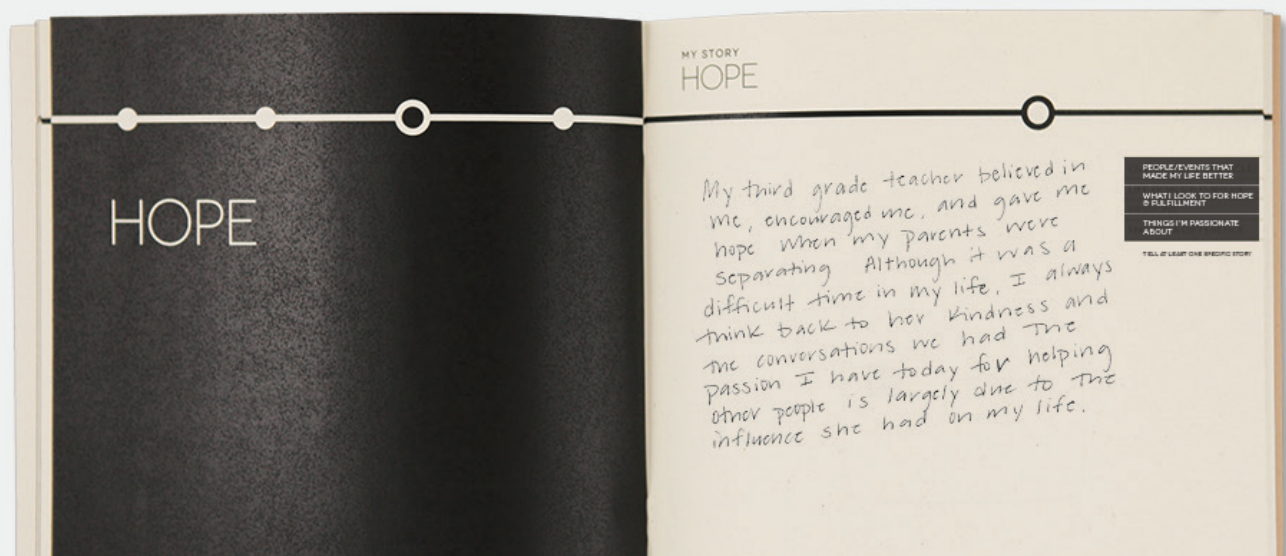 HOPE
MY STORY
HOPE
My third grade teacher believed in
me, encouraged me, and gave me
hope when my parents were
separating Although it was a
difficult time in my life, I always
think back to her kindness and
the conversations we had The
passion I have today for helping
other people is largely due to the
influence she had on my life.
PEOPLE/EVENTS THAT
MADE MY LIFE BETTER
WHAT I LOOK TO FOR HOPE
& FULFILLMENT
THINGS I'M PASSIONATE
ABOUT
TELL AT LEAST ONE SPECIFIC STORY